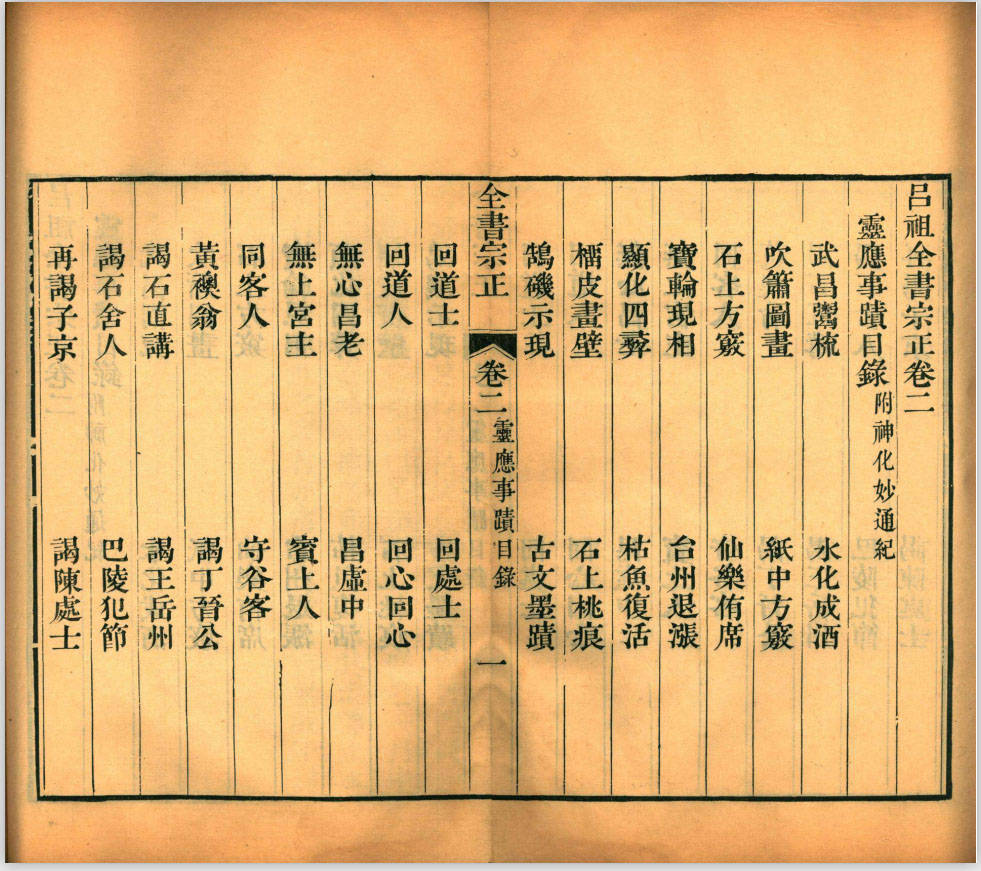 呂祖全書宗正卷二
靈應事蹟目錄附神化妙通紀
武昌鬻梳 水化成酒
吹簫圖畫 紙中方竅
石上方竅 仙樂侑席
寶輪現相 台州退漲
顯化四彛 枯魚復活
橊皮畫壁 石上桃痕
鵠磯示現 古文墨蹟
全書宗正 卷二 靈應事蹟目錄 一
回道士 回處士
回道人 回心回心
無心昌老 昌虛中
無上宮主 賓上人
同客人 守谷客
黃襖翁 謁丁晉公
謁石直講 謁王岳州
謁石舍人 巴陵犯節
再謁子京 謁陳處士